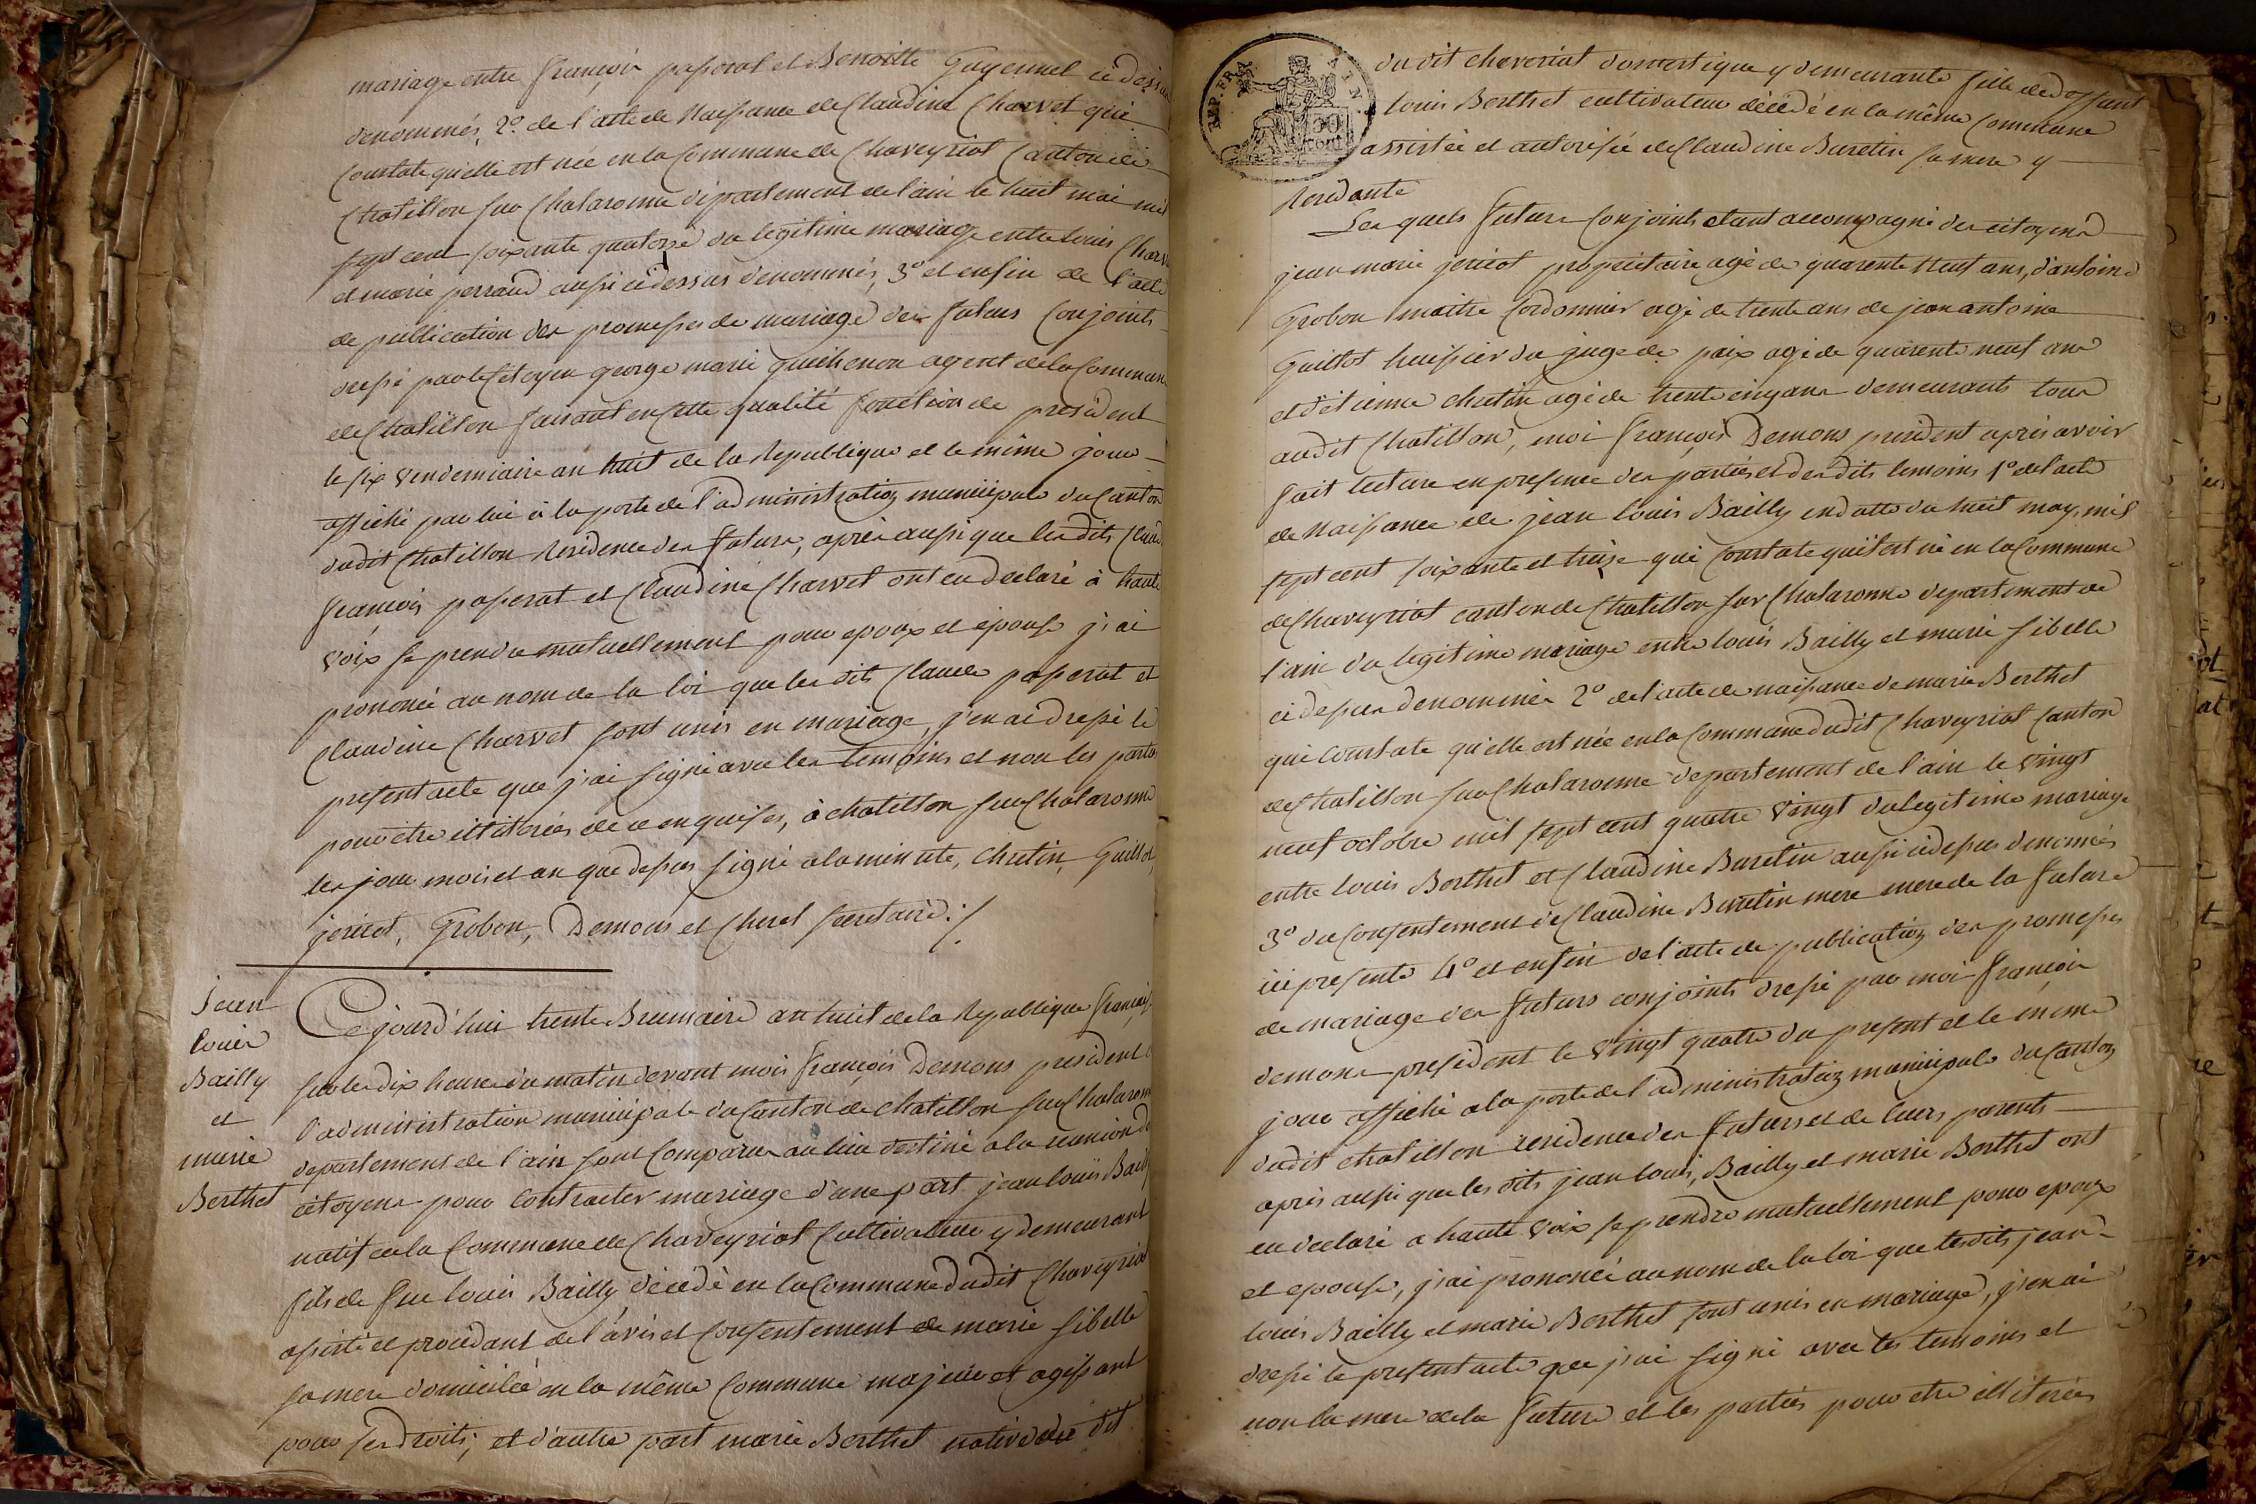 mariage entre françois passerat et Benoitte Guyennet ci dessus
denommés, 2º. de l'acte de Naissance de Claudine Charvet qui
Constate qu'elle est née en la Commune de Chaveyriat Canton de
Chatillon sur Chalaronne département de l'ain le huit mai mil
sept cent soixante quatorze du legitime mariage entre Louis Charvet
et marie perraud aussi ci dessus denommés, 3º et enfin de l'acte
de publication des promesses de mariage des futurs Conjoints
dressé par le Citoyen george marie guichenon agent de la Commune
de Chatillon faisant en cette qualité fonction de president
le six vendemiaire an huit de la Republique et le même jour
affiché par lui à la porte de l'administration municipale du Canton
dudit Chatillon Residence des futurs, après aussi que les dits Claude
françois passerat et Claudine Charvet ont eu declaré à haute
voix se prendre mutuellement pour epoux et épouse j'ai
prononcé au nom de la loi que les dits Claude passerat et
Claudine Charvet sont unis en mariage, j'en ai dressé le
present acte que j'ai signé avec les temoins et non les parties
pour être illiterées de ce enquises, à chatillon sur Chalaronne
les jour mois et an que dessus signé a la minute, Chatin, Guillot,
jericot, Grobon, Demons et Churel secretaire ./.
Jean
louis
Bailly
et
marie
Berthet
Cejourd'hui trente Brumaire an huit de la Republique françaisse
sur les dix heures du matin devant moi françois Demons president de
l'administration municipale du Canton de chatillon sur Chalaronne
departement de l'ain sont Comparus au lieu destiné a la reunion des
citoyens pour Contracter mariage d'une part jean louis Bailly
natif de la Commune de Chaveyriat Cultivateur y demeurant
fils de feu louis Bailly décédé en la Commune dudit Chaveyriat
assisté et procédant de l'avis et Consentement de marie sibelle
sa mere domiciliée en la même Commune majeur et agissant
pour ses droits; et d'autre part marie Berthet native du dit
REP. FRA.
50
cent
du dit chaveriat domestique y demeurante fille de deffunt
louis Berthet cultivateur décédé en la même Commune
assistée et autorisée de Claudine Buretin sa mere y
Residante
Les quels futurs Conjoints etant accompagné des citoyens
jean marie jericot propriétaire agé de quarente neuf ans, d'antoine
Grobon maitre Cordonnier agé de trente ans de jean antoine
Guillot huissier du juge de paix agé de quarente neuf ans
et d'étienne chatin agé de trente cinq ans demeurants tous
audit Chatillon, moi françois Demons president après avoir
fait lecture en presence des parties et des dits temoins 1º de l'acte
de Naissance de jean louis Bailly en datte du huit may mil
sept cent soixante et treize qui Constate qu'il est né en la Commune
de Chaveyriat canton de Chatillon sur Chalaronne departement de
l'ain du legitime mariage entre louis Bailly et marie sibelle
ci dessus denommés 2º de l'acte de naissance de marie Berthet
qui Constate qu'elle est née en la Commune dudit Chaveyriat Canton
de Chatillon sur Chalaronne departement de l'ain le vingt
neuf octobre mil sept cent quatre vingt du legitime mariage
entre louis Berthet et Claudine Buretin aussi ci dessus denommés
3º du Consentement de Claudine Buretin mere mere de la future
ici presente 4º et enfin de l'acte de publication des promesses
de mariage des futurs conjoints dressé par moi françois
demons president le vingt quatre du present et le même
jour affiché a la porte de l'administration municipale du Canton
dudit chatillon residence des futurs et de leurs parents
après aussi que les dits jean louis, Bailly et marie Berthet ont
eu declaré a haute voix se prendre mutuellement pour epoux
et epouse, j'ai prononcé au nom de la loi que lesdits jean
louis Bailly et marie Berthet sont unis en mariage, j'en ai
dressé le present acte que j'ai signé avec les temoins et
non la mere de la future et les parties pour etre illiterées